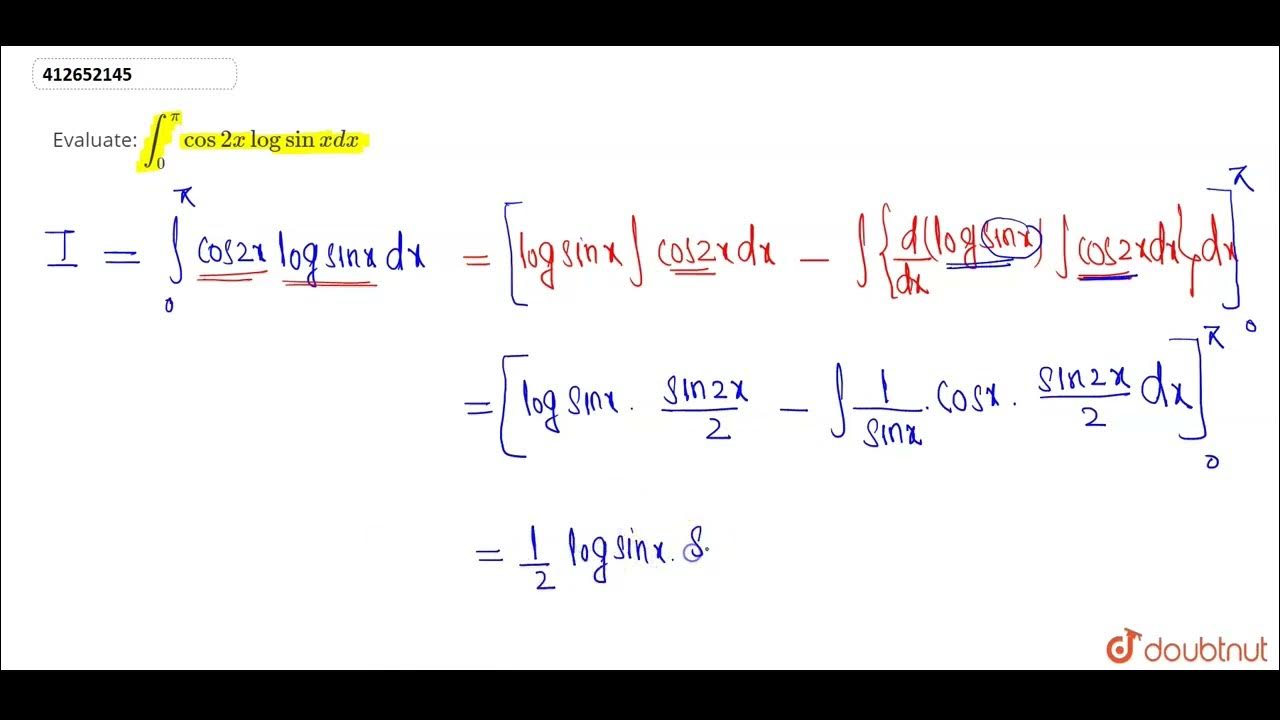 412652145
Evaluate: ∫₀^π cos 2x log sin xdx
I = ∫₀^π cos2x log sinx dx = [log sinx ∫ cos2x dx − ∫ { d/dx (log sinx) ∫ cos2x dx } dx]₀^π
= [log sinx · sin2x/2 − ∫ 1/sinx · cosx · sin2x/2 dx]₀^π
= 1/2 log sinx · s
doubtnut